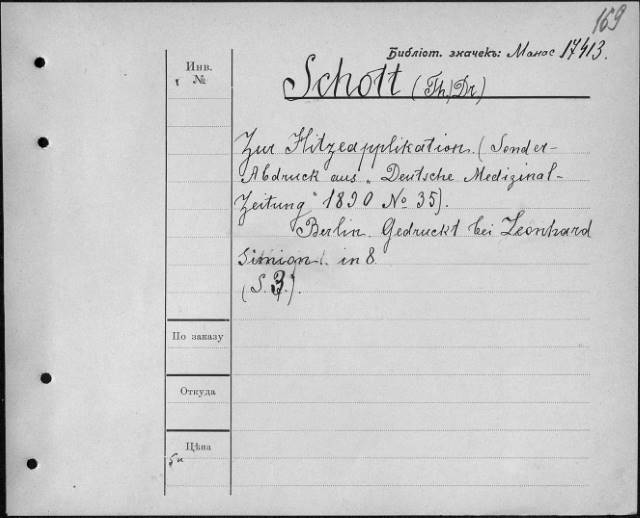 169
Библіот. значекъ: Манас 17413.
Инв.
№
Schott (Th. Dr.)
Zur Hitzeapplikation. (Sonder-
Abdruck aus „Deutsche Medizinal-
Zeitung" 1890 № 35).
Berlin. Gedruckt bei Leonhard
Simion. in 8
(S. 3.).
По заказу
Откуда
Цѣна